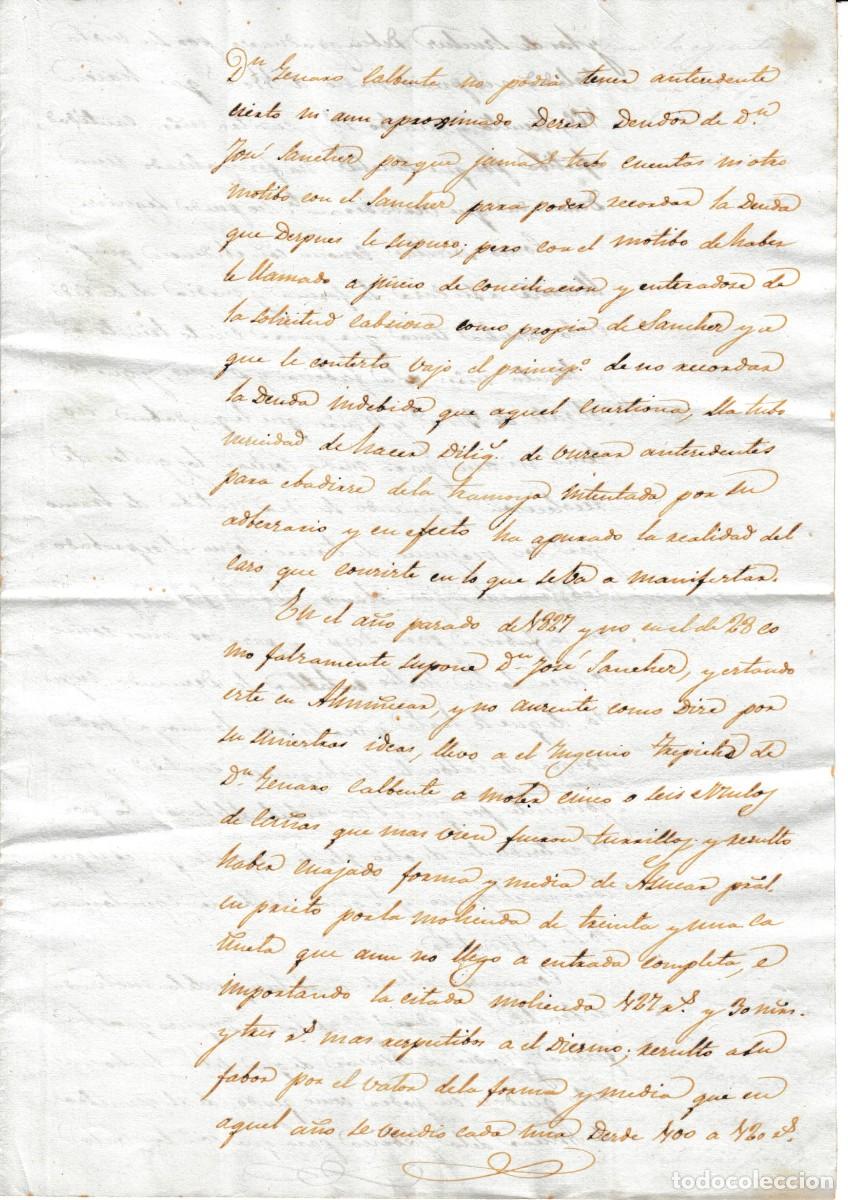 Dn Genaro Calbente no podia tener antecedente
cierto ni aun aproximado de ser Deudor de Dn
José Sanchez porque jamas tubo cuentas ni otro
motibo con el Sanchez para poder recordar la Deuda
que Despues le supuso; pero con el motibo de haber
le llamado a juicio de conciliacion y enteradose de
la solicitud como propia de Sanchez y a
que le contesto vajo el princip.º de no recordar
la Deuda indebida que aquel cuestiona, tubo
necicidad de hacer Dilig.s de buscar antecedentes
para ebadirse de la tramoya intentada por su
adbersario y en efecto ha apurado la realidad del
caso que consiste en lo que se va a manifestar.
En el año pasado de 1827 y no en el de 28 co
mo falsamente supone Dn José Sanchez, y estando
este en Almuñecar, y no ausente como Dice por
su siniestras ideas, llevo a el Ingenio Trapiche de
Dn Genaro Calbente a moler cinco o seis Mulos
de Cañas que mas vien fueron y resulto
haber cuajado forma y media de Asucar
en prieto por la molienda de treinta y una ca
ñueta que aun no llego a entrada completa, e
importando la citada molienda 127 r.s y 30 mrs.
y tres r.s mas respectibos a el Diesmo; resulto a su
fabor por el valor de la forma y media que en
aquel año se vendio cada una Desde 100 a 120 r.s
todocoleccion